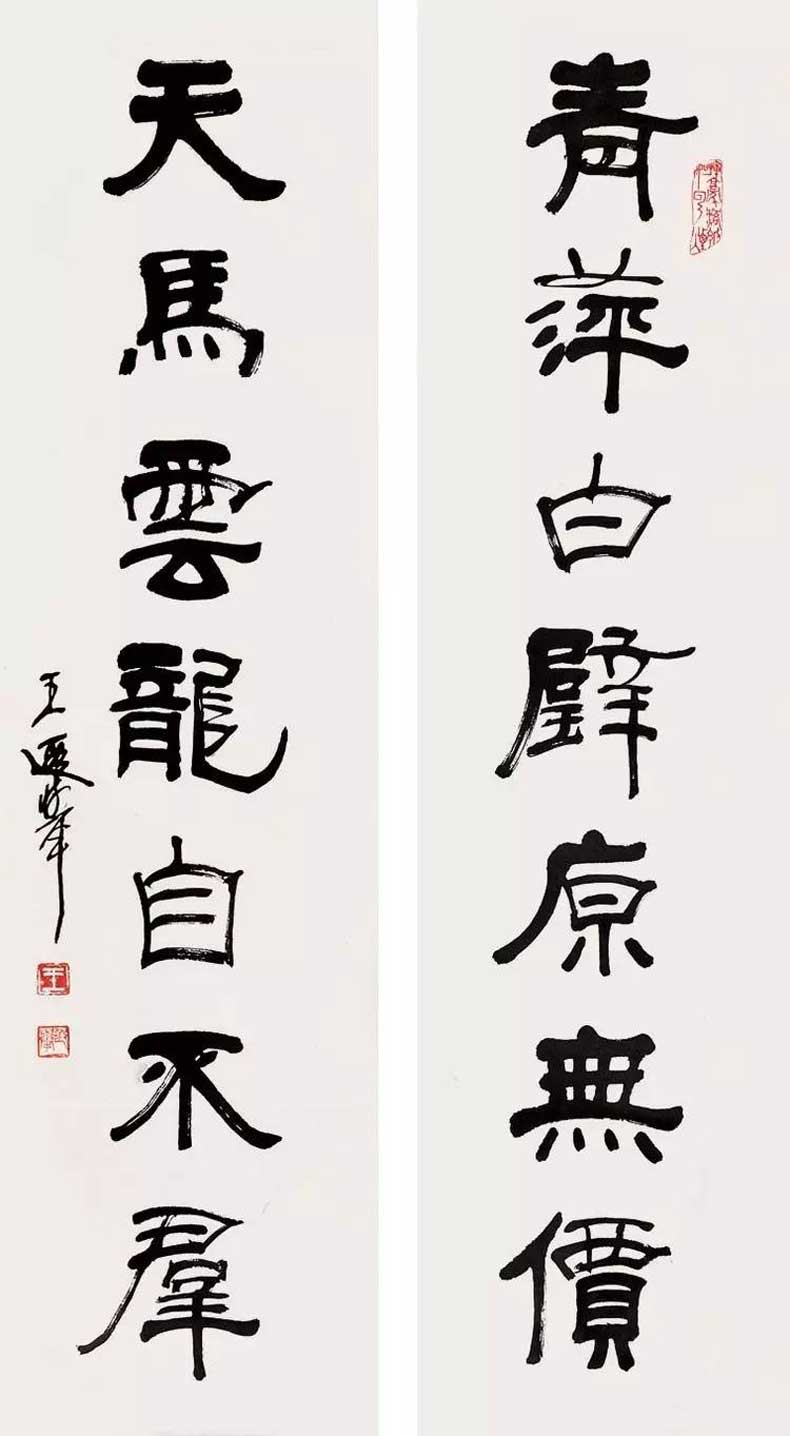 青萍白璧原無價
天馬雲龍自不羣
王遐舉
王